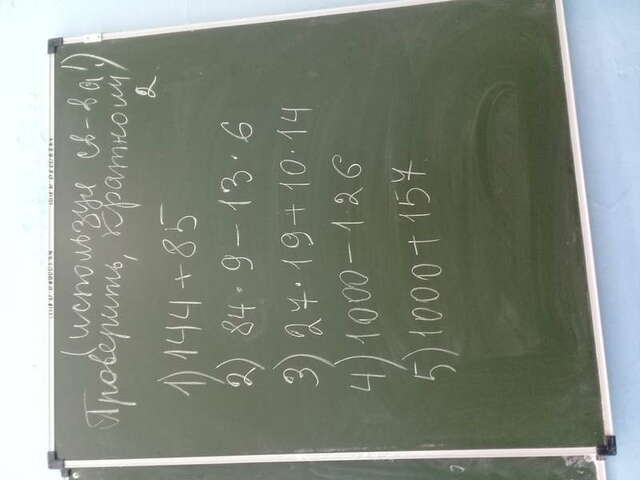 (используя св-ва!)
Проверить, кратному
2
1) 144 + 85
2) 84 · 9 - 13 · 6
3) 27 · 19 + 10 · 14
4) 1000 - 126
5) 1000 + 157